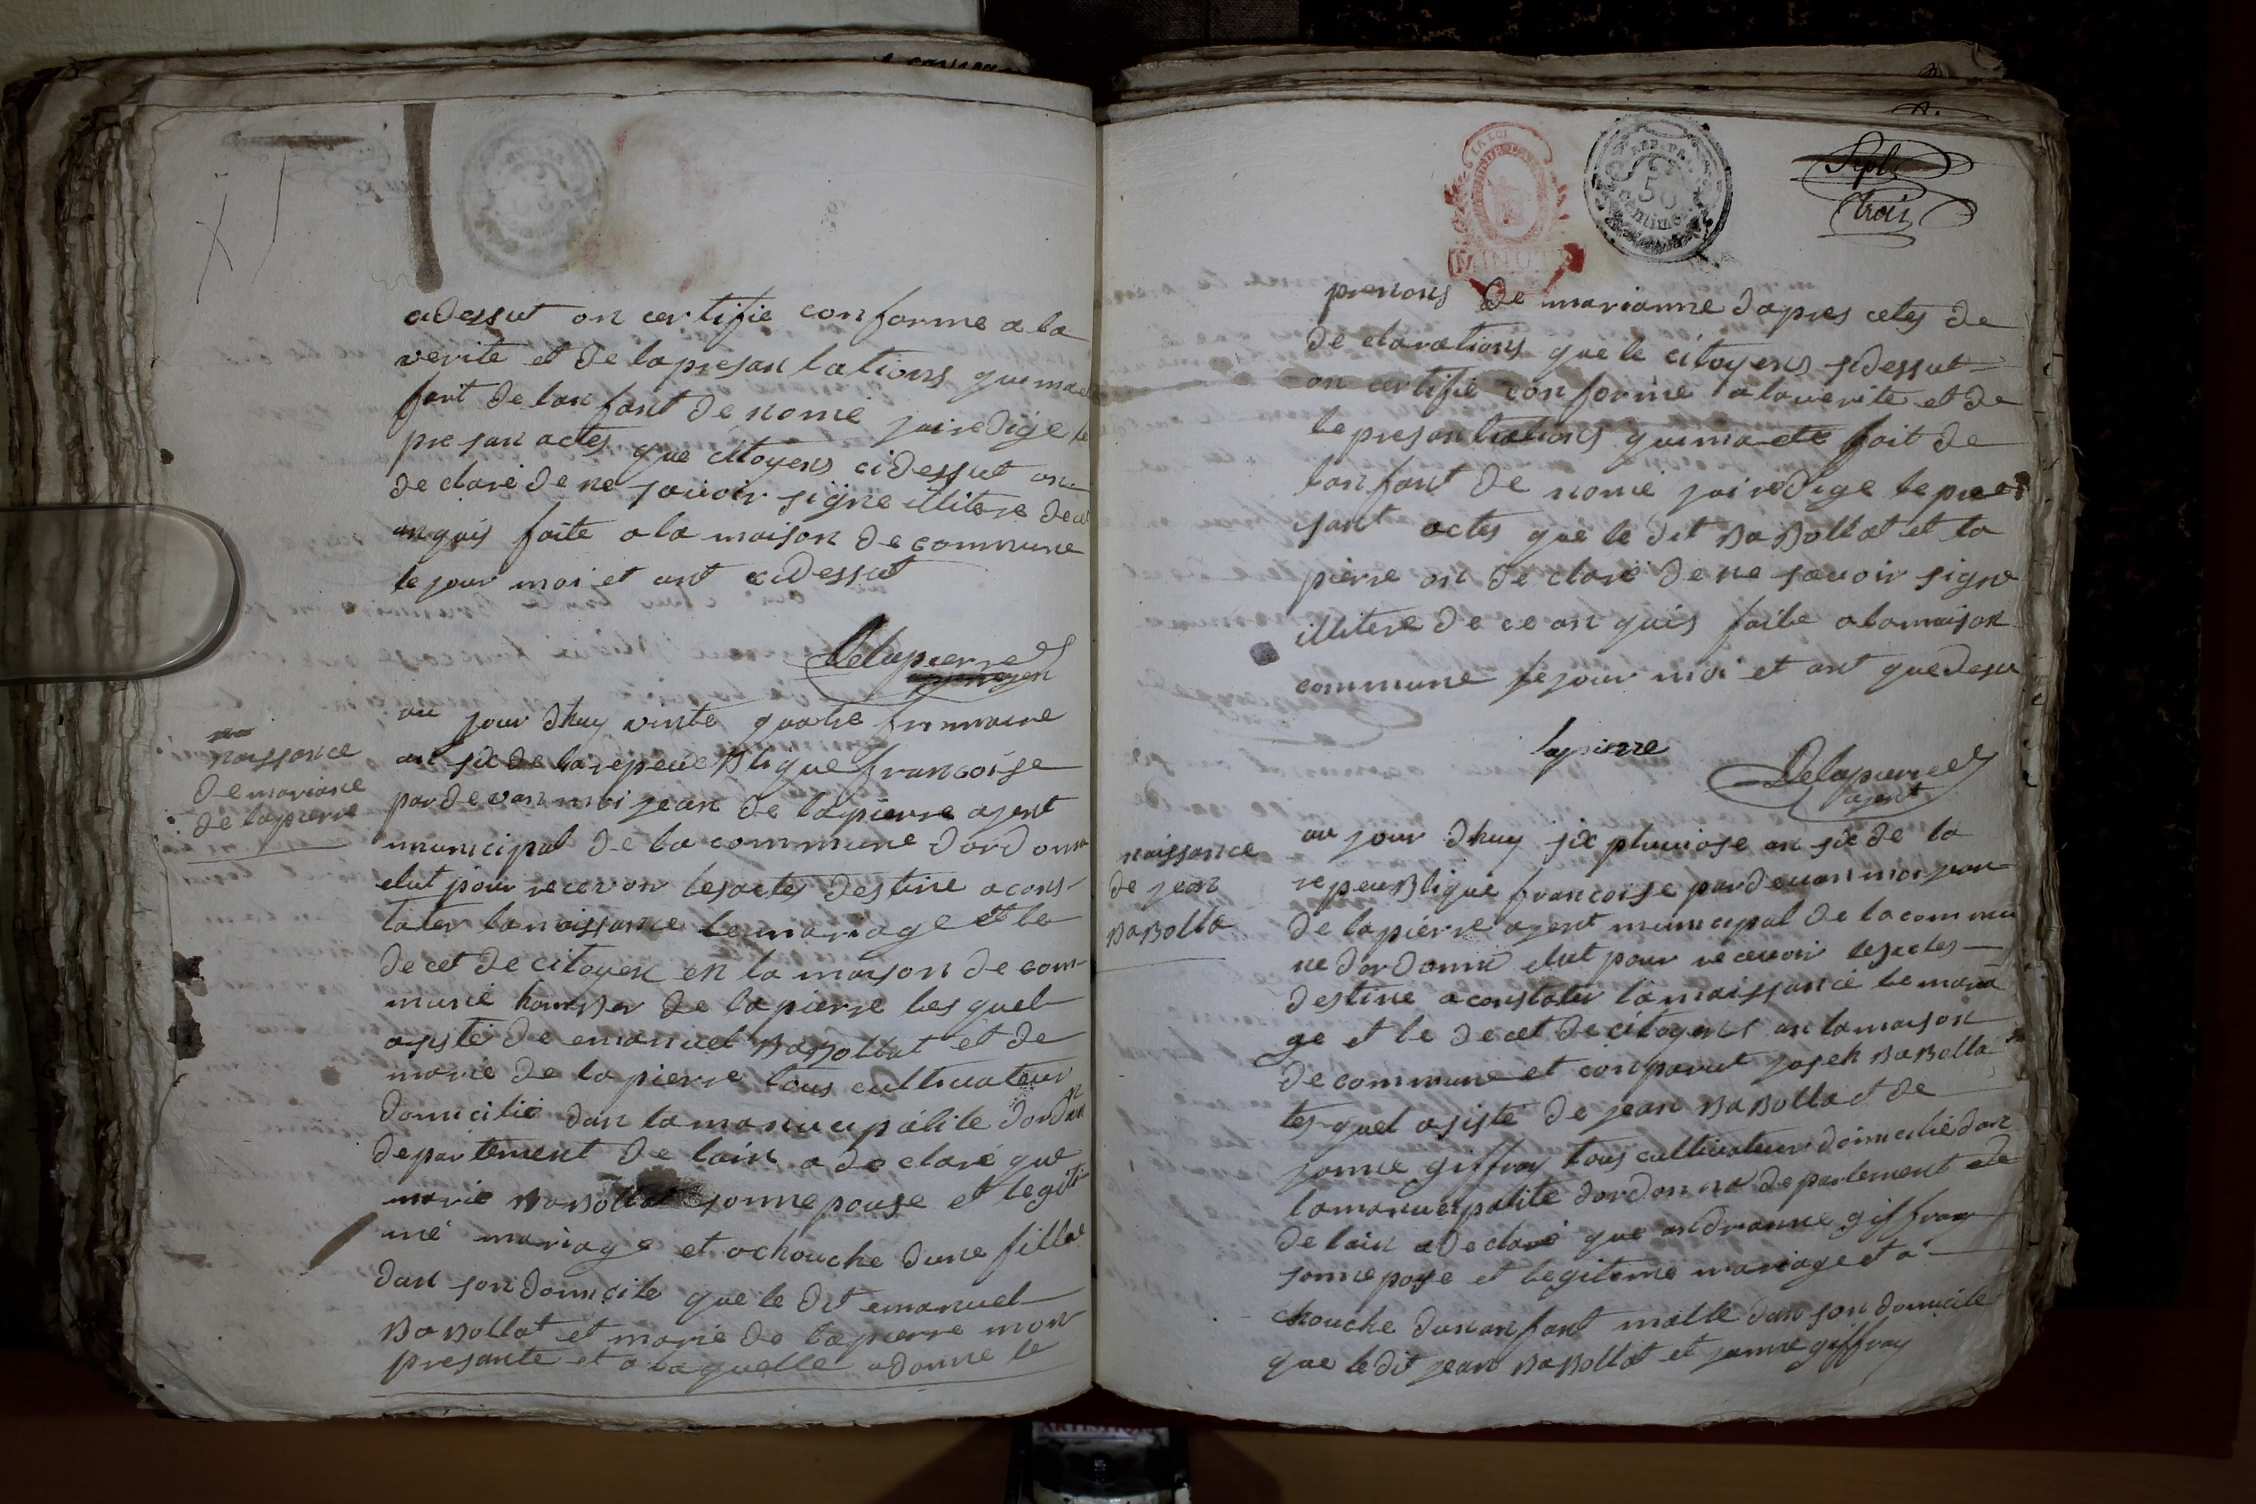 adessut on certifie conforme a la
verite et de la presantations quima
fait de lanfant de nomé jai redigé le
presan actes que citoyens cidessut on
declaré de ne savoir signe illitere de ce
anquis faite a la maison de commune
le jour moi et ant cidessut
Delapierre
naissance
de mariane
de lapierre
au jour dhuy vinte quatre frimaire
ant six de la repeublique francoise
pardevan moi jean de lapierre ajent
municipal de la commune dordonna
elut pour recevoir lesactes destine acons-
tater lanaissance lemariage et le
decet de citoyen en la maison de com-
mune de lapierre lesquel
asisté de emanuel Babollat et de
marie de lapierre tous cultivateur
domicilié dan lamanucipalité
departement de lain a declaré que
marie Babollat sonnepouse et legiti-
me mariage et achouche dune fille
dan son domicile que le dit emanuel
Babollat et marie de lapierre mon
presante et a laquelle adonné le
LA LOI
MINUTE
REP. FRA.
50
centimes
trois
prenons de marianne dapres cetes de
declarations que le citoyens sidessut
on certifie conforme a laverite et de
le presantations quima eté fait de
lanfant de nomé jai redigé le pre
sant actes que le dit Babollat et la
pierre on declaré de ne savoir signe
illitere de ce anquis faite alamaison
commune lejour moi et ant quedesu
lapierre
Delapierre
ajent
naissance
de jean
Babolla
au jour dhuy six pluviose an six de la
repeublique francoise pardevan moi jean
de lapierre ajent municipal de lacommu
ne dordonna elut pour recevoir lesactes
destine aconstater lanaissance lemaria
ge et le decet de citoyens an lamaison
de commune et conparut joseh Babolla
lesquel asisté de jean Babolla et de
janne giffray tous cultivateur domicilié dan
lamanucipalité dordonna departement de
de lain a declaré que andrianne giffray
sonnepose et legiteme mariage et a
chouche dunanfant malle dan son domicile
que ledit jean Babollat et janne giffray